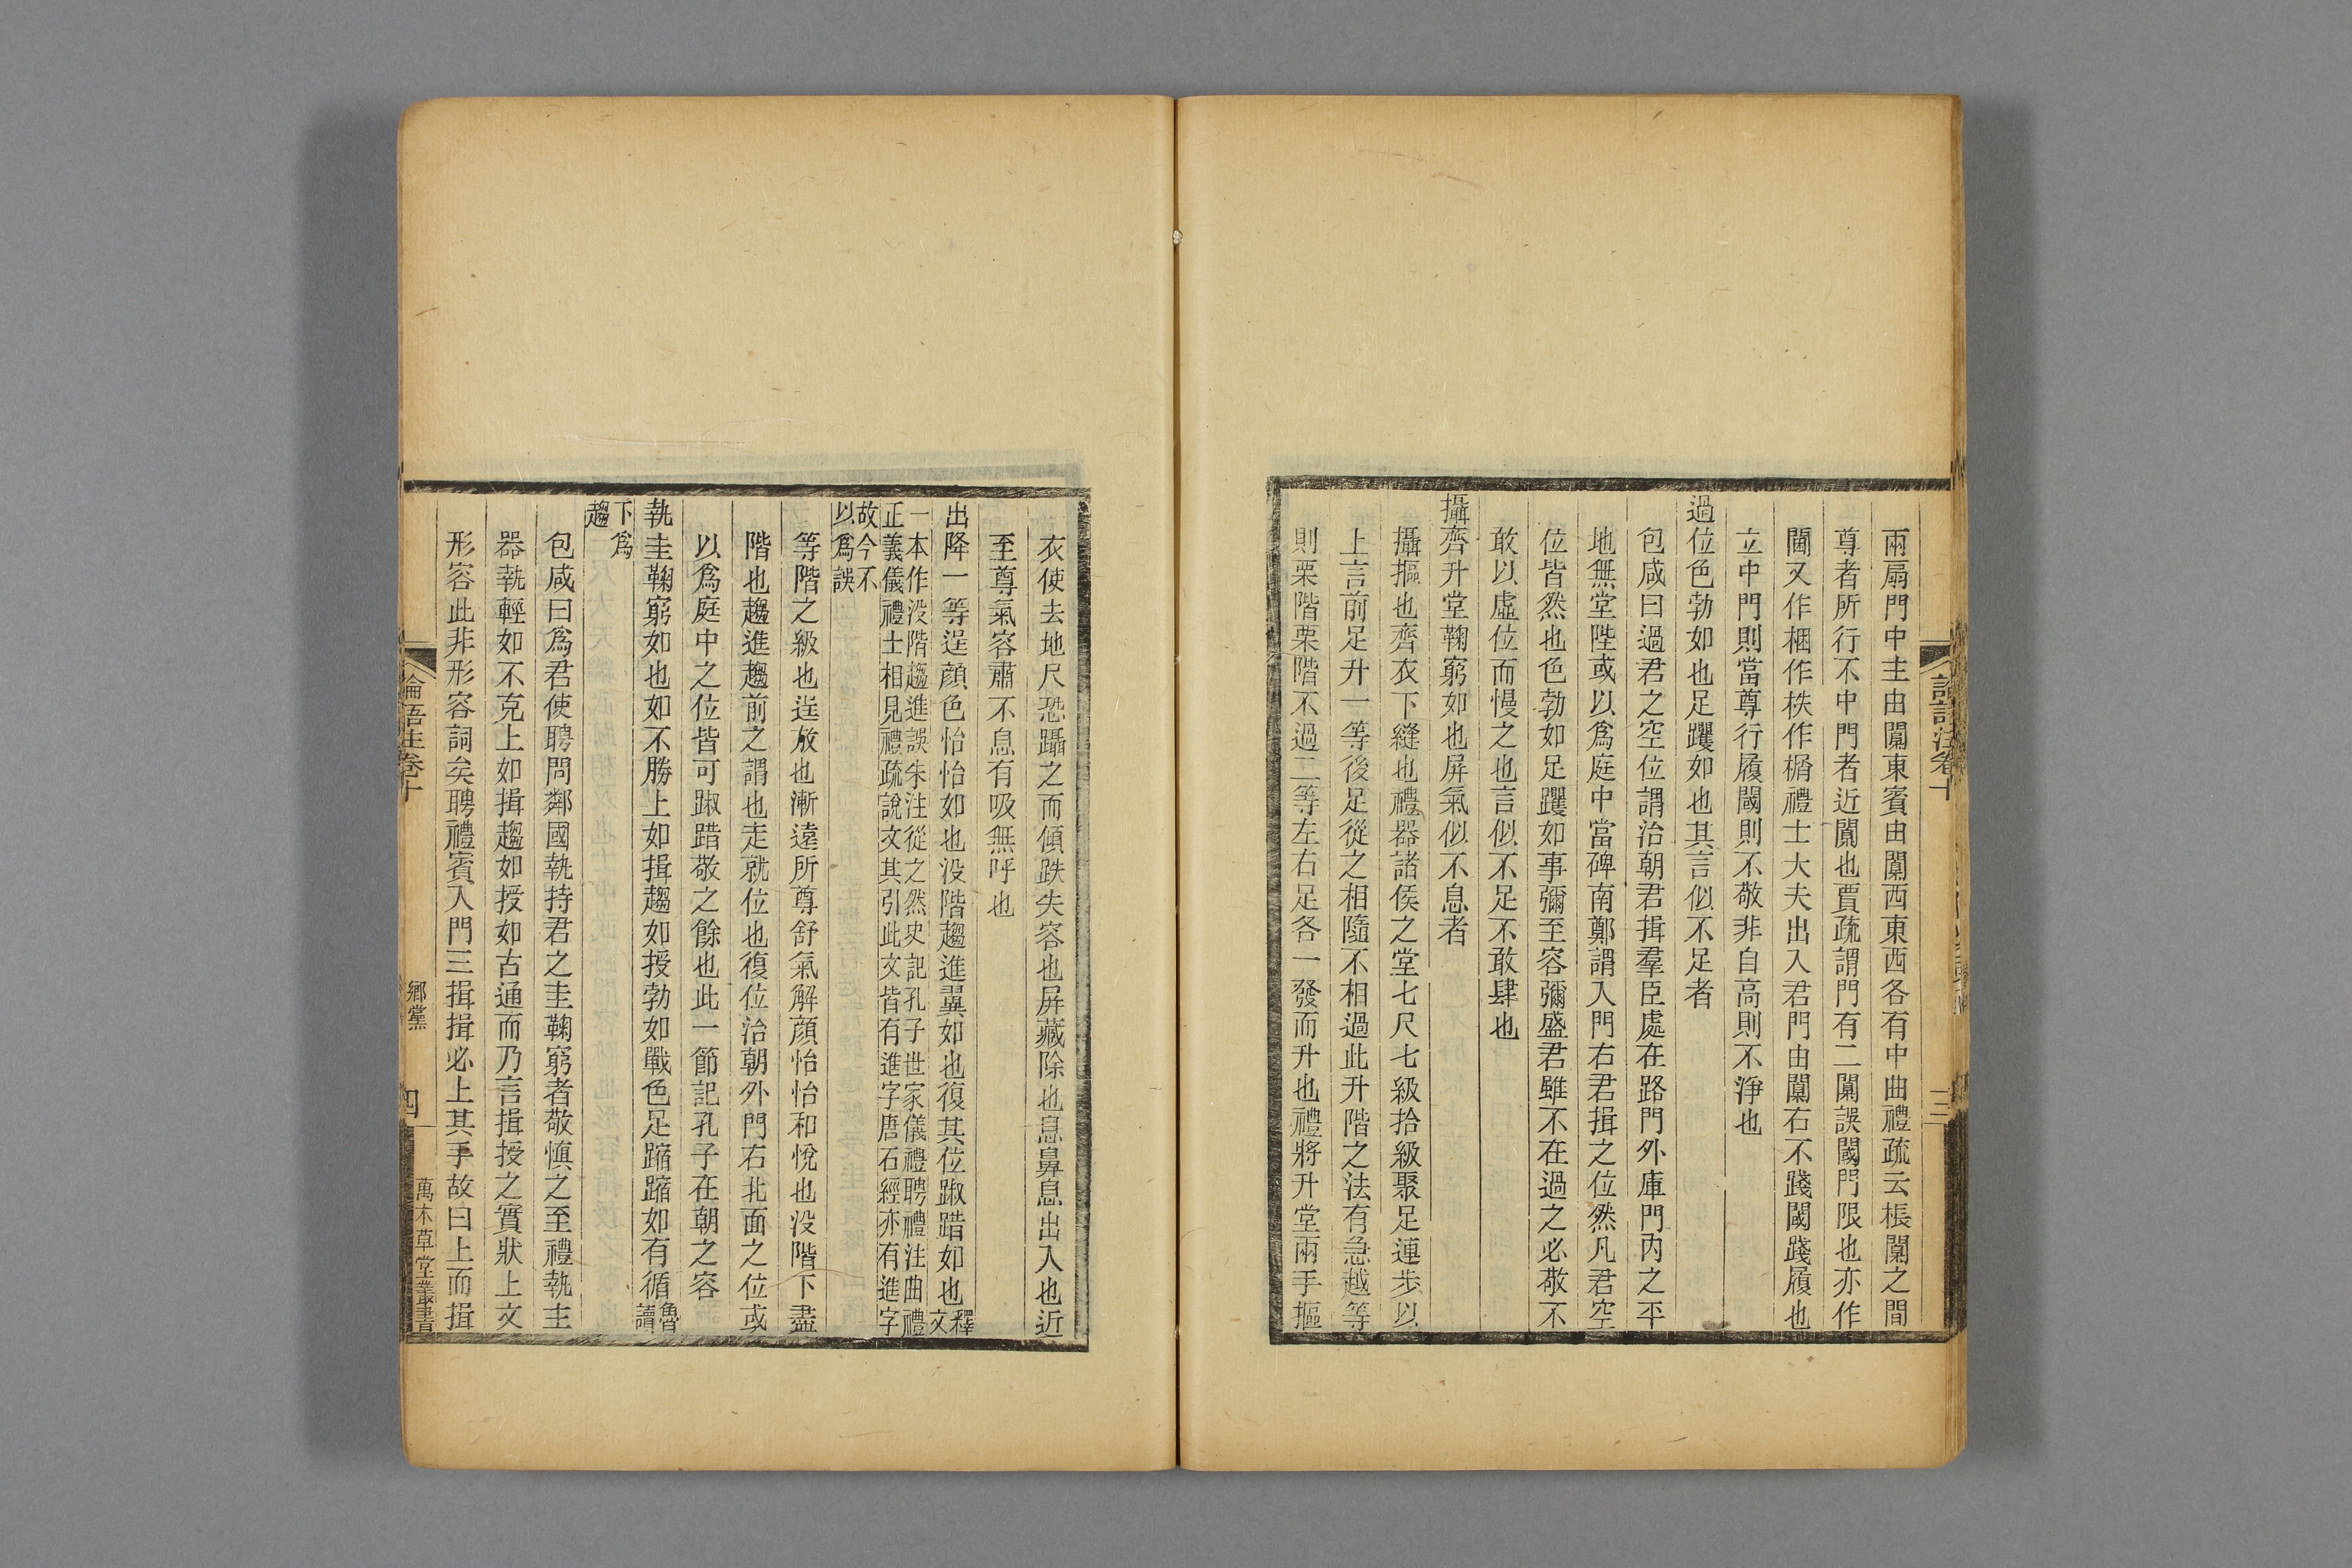 兩扇門中主由闑東賓由闑西東西各有中曲禮疏云棖闑之間
尊者所行不中門者近闑也賈疏謂門有二闑誤閾門限也亦作
閫又作梱作柣作榍禮士大夫出入君門由闑右不踐閾踐履也
立中門則當尊行履閾則不敬非自高則不淨也
過位色勃如也足躩如也其言似不足者
包咸曰過君之空位謂治朝君揖羣臣處在路門外庫門內之平
地無堂陛或以爲庭中當碑南鄭謂入門右君揖之位然凡君空
位皆然也色勃如足躩如事彌至容彌盛君雖不在過之必敬不
敢以虛位而慢之也言似不足不敢肆也
攝齊升堂鞠窮如也屏氣似不息者
攝摳也齊衣下縫也禮器諸侯之堂七尺七級拾級聚足連步以
上言前足升一等後足從之相隨不相過此升階之法有急越等
則栗階栗階不過二等左右足各一發而升也禮將升堂兩手摳
衣使去地尺恐躡之而傾跌失容也屏藏除也息鼻息出入也近
至尊氣容肅不息有吸無呼也
出降一等逞顔色怡怡如也没階趨進翼如也復其位踧踖如也釋文
一本作没階趨進誤朱注從之然史記孔子世家儀禮聘禮注曲禮
正義儀禮士相見禮疏說文其引此文皆有進字唐石經亦有進字
故今不
以爲誤
等階之級也逞放也漸遠所尊舒氣解顔怡怡和悅也没階下盡
階也趨進趨前之謂也走就位也復位治朝外門右北面之位或
以爲庭中之位皆可踧踖敬之餘也此一節記孔子在朝之容
執圭鞠窮如也如不勝上如揖趨如授勃如戰色足蹜蹜如有循魯讀
下爲
趨
包咸曰爲君使聘問鄰國執持君之圭鞠窮者敬慎之至禮執主
器執輕如不克上如揖趨如授如古通而乃言揖授之實狀上文
形容此非形容詞矣聘禮賓入門三揖揖必上其手故曰上而揖
論語注卷十
鄉黨
四
萬木草堂叢書